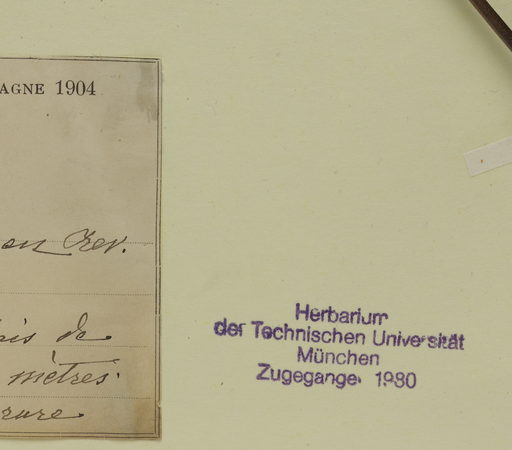 AGNE 1904
Rev.
de
mètres.
Herbarium
der Technischen Universität
München
Zugegangen 1980